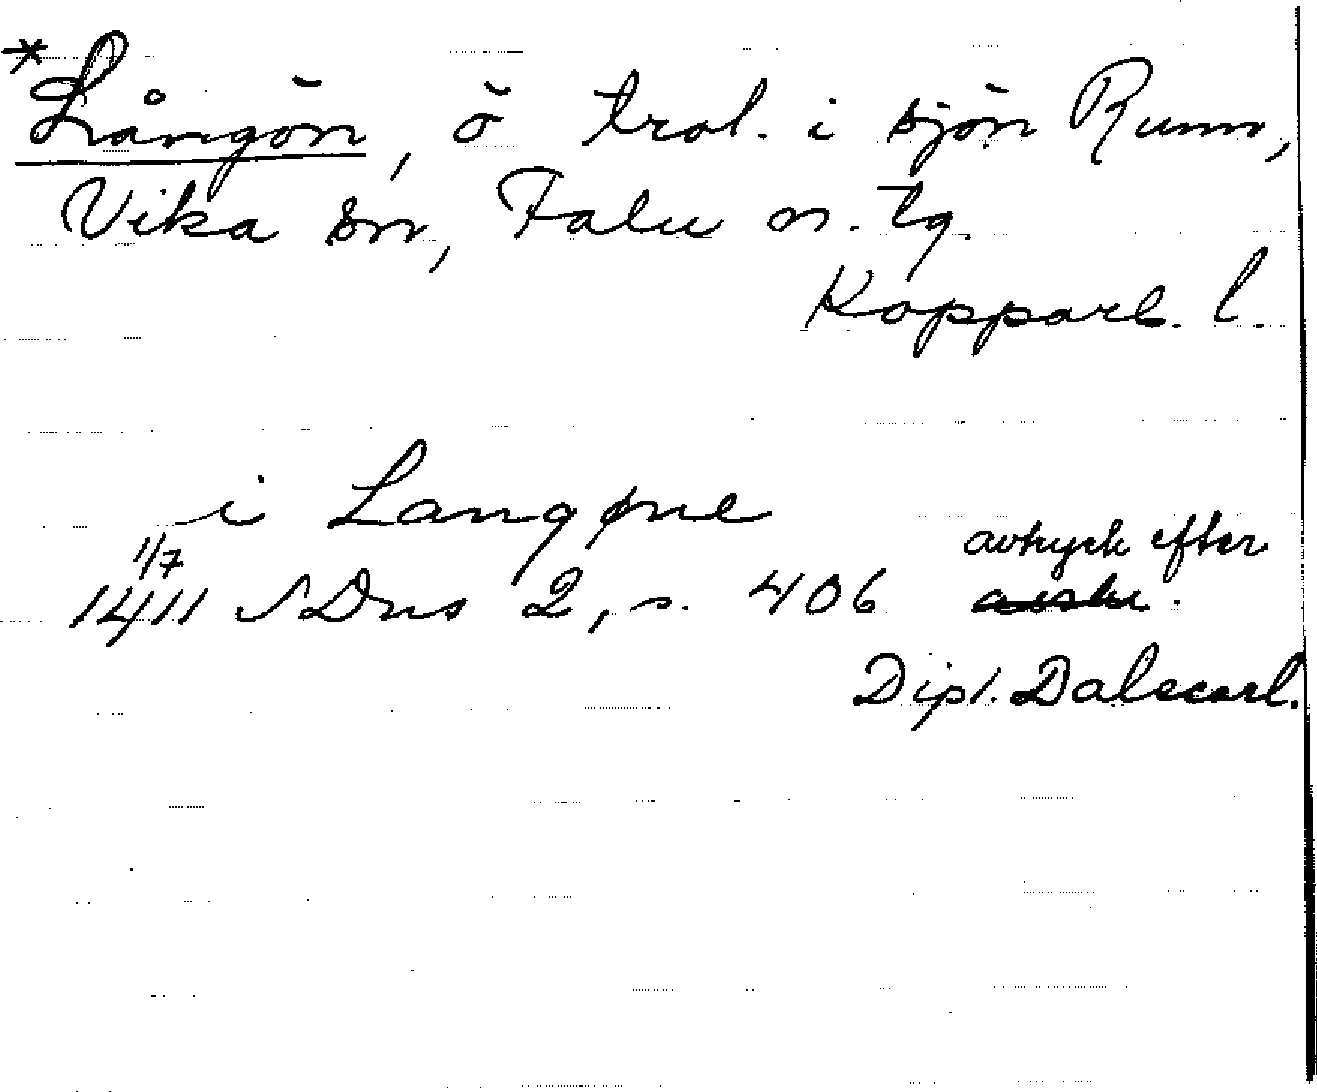 *Långön, ö trol. i sjön Runn,
Vika sn, Falu n. tg.
Kopparb. l.
i Langøne
1/7
1411 SDns 2, s. 406 avtryck efter
Dipl. Dalecarl.